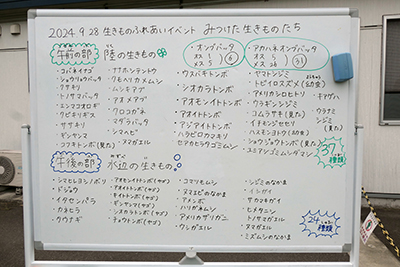 2024 9.28 生きものふれあいイベント みつけた生きものたち
午前の部 陸の生きもの
・コバネイナゴ
・ショウリョウバッタ
・クサキリ
・トノサマバッタ
・エンマコオロギ
・クビキリギス
・ササキリ
・ギンヤンマ
・コフキトンボ(見た)
・ナナホシテントウ
・クモヘリカメムシ
・ムシキアブ
・アオメアブ
・クロコガネ
・マダラバッタ
・シマヘビ
・ヌマガエル
・オンブバッタ
オス 5
メス 5
6
・ウスバキトンボ
・シオカラトンボ
・アオモンイトトンボ
・アオイトトンボ
・アジアイトトンボ
・ハラビロカマキリ
・セアカヒラタゴミムシ
・アカハネオンブバッタ
オス 5
メス
31
・ヤマトシジミ
・トビイロスズメ(幼虫)
・アメリカシロヒトリ
・ウラギンシジミ
・コムラサキ(見た)
・イチモンジセセリ
・ハスモンヨトウ(幼虫)
・ショウジョウトンボ(見た)
・ユミアシゴミムシダマシ
・キアゲハ
・ウラナミシジミ
(見た)
37種類
午後の部 水辺の生きもの
・シマヒレヨシノボリ
・ドジョウ
・イタセンパラ
・カネヒラ
・タウナギ
・アオモンイトトンボ(ヤゴ)
・アオイトトンボ(ヤゴ)
・ギンヤンマ(ヤゴ)
・シオカラトンボ(ヤゴ)
・チョウトンボ(ヤゴ)
・コマツモムシ
・ヌマエビのなかま
・アメンボ
・ハリガネムシ
・アメリカザリガニ
・ウシガエル
・シジミのなかま
・イシガイ
・サカマキガイ
・ヒメタニシ
・トノサマガエル
・ヌマガエル
・ミズムシのなかま
24種類